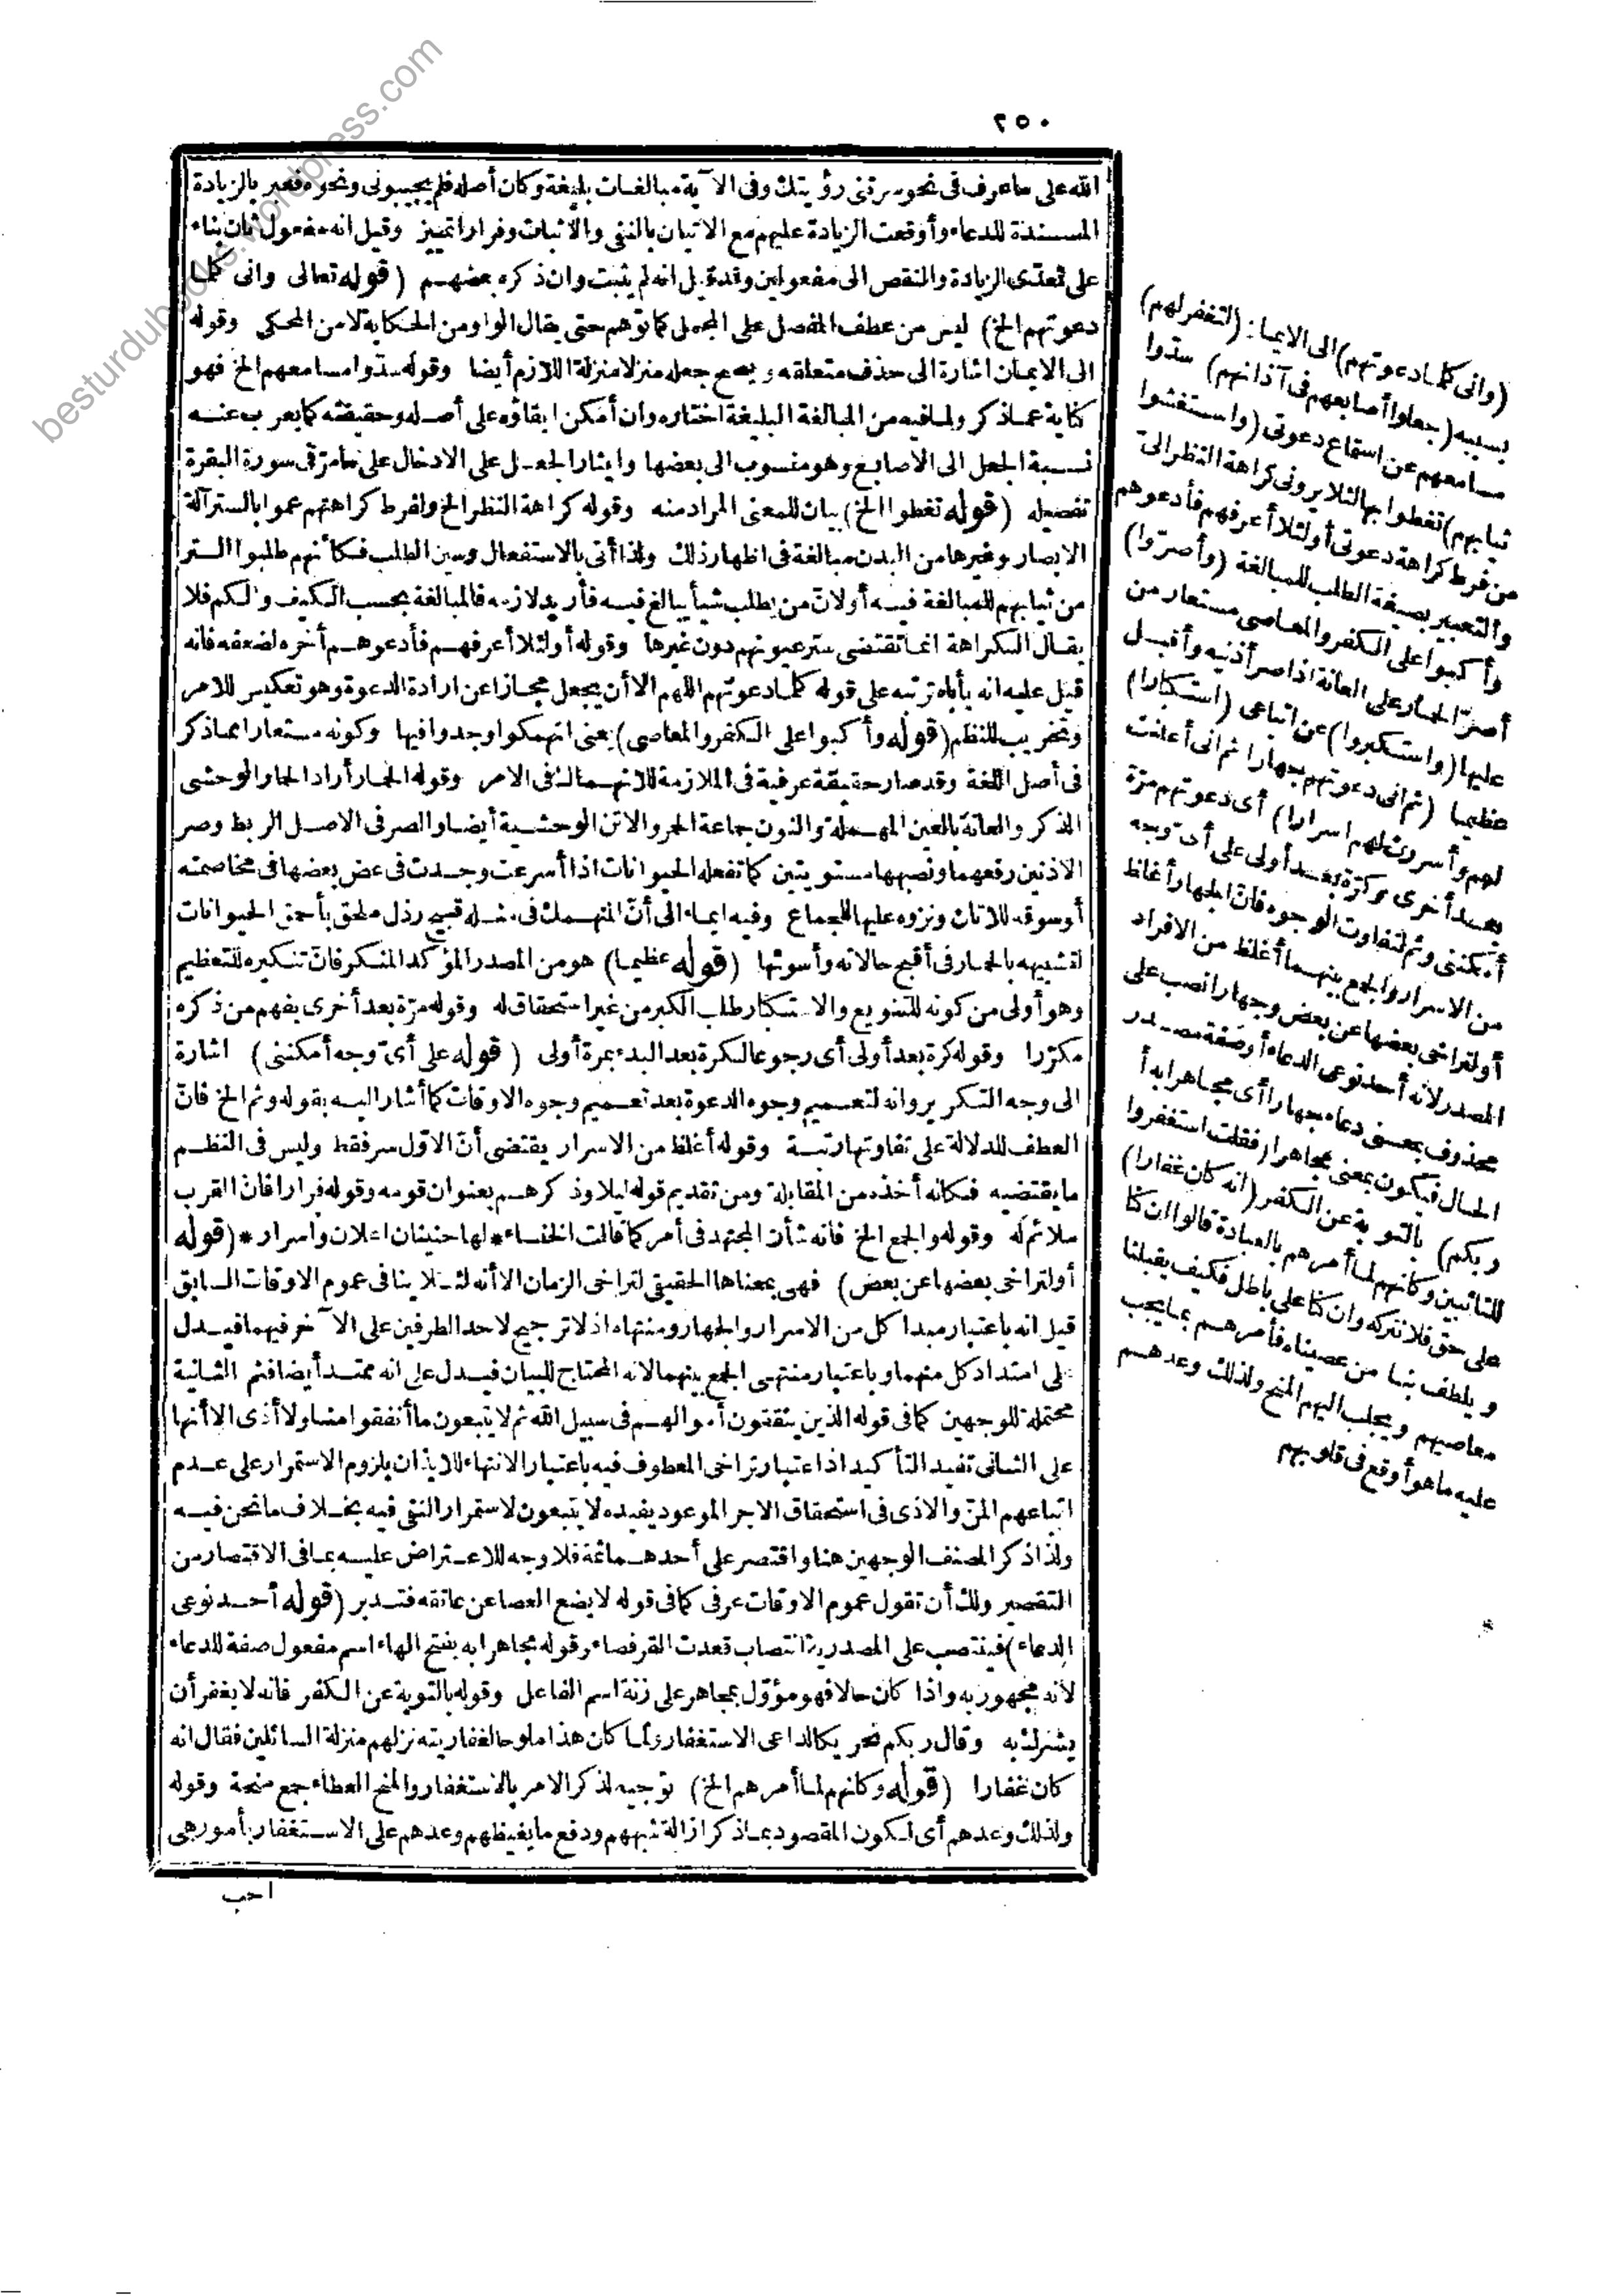 ٢٥٠
الله على ما عرف فى نحو سرتنى رؤيتك وفى الآية مبالغات بليغة وكان أصله فلم يجيبونى ونحوه فعبر بالزيادة
المسندة للدعاء وأوقعت الزيادة عليهم مع الاتيان بالنفى والاثبات وفرارا تمييز وقيل انه مفعول ثان بناء
على تعدّى الزيادة والنقص الى مفعولين وقد قيل انه لم يثبت وان ذكره بعضهم (قوله تعالى وانى كلما
دعوتهم الخ) ليس من عطف المفصل على المجمل كما توهم حتى يقال الواو من الحكاية لا من المحكى وقوله
الى الايمان اشارة الى حذف متعلقه ويصح جعله منزلا منزلة اللازم أيضا وقوله سدّوا مسامعهم الخ فهو
كناية عما ذكر ولما فيه من المبالغة البليغة اختاره وان أمكن ابقاؤه على أصله وحقيقته كما يعرب عنه
نسبة الجعل الى الاصابع وهو منسوب الى بعضها وايثار الجعل على الادخال على ما مرّ فى سورة البقرة
تفصيله (قوله تغطوا الخ) بيان للمعنى المراد منه وقوله كراهة النظر الخ ولفرط كراهتهم عموا بالستر آلة
الابصار وغيرها من البدن مبالغة فى اظهار ذلك ولذا أتى بالاستفعال وسين الطلب فكأنهم طلبوا الستر
من ثيابهم للمبالغة فيه أولانّ من يطلب شيأ يبالغ فيه فأريد لازمه فالمبالغة بحسب الكيف والكم فلا
يقال الكراهة انما تقتضى ستر عيونهم دون غيرها وقوله أولئلا أعرفهم فأدعوهم أخره لضعفه فانه
قيل عليه انه يأباه ترتبه على قوله كلما دعوتهم اللهم الا أن يجعل مجازا عن ارادة الدعوة وهو تعكيس للامر
وتخريب للنظم (قوله وأكبوا على الكفر والمعاصى) يعنى انهمكوا وجدوا فيها وكونه مستعارا مما ذكر
فى أصل اللغة وقد صار حقيقة عرفية فى الملازمة للانهماك فى الامر وقوله الحمار أراد الحمار الوحشى
الذكر والعانة بالعين المهملة والنون جماعة الحمر والاتن الوحشية أيضا والصر فى الاصل الربط وصر
الاذنين رفعهما ونصبهما مستويتين كما تفعله الحيوانات اذا أسرعت وجدت فى عض بعضها فى مخاصمته
أو سوقه للاتان ونزوه عليها للجماع وفيه ايماء الى أنّ المنهمك فى مثله قبيح رذل ملحق بأحمق الحيوانات
لتشبيهه بالحمار فى أقبح حالاته وأسوئها (قوله عظيما) هو من المصدر المؤكد المنكر فانّ تنكيره للتعظيم
وهو أولى من كونه للتنويع والاستكبار طلب الكبر من غير استحقاق له وقوله مرّة بعد أخرى يفهم من ذكره
مكرّرا وقوله كرة بعد أولى أى رجوعا لكرة بعد البدء بمرة أولى (قوله على أىّ وجه أمكننى) اشارة
الى وجه التكرير وانه لتعميم وجوه الدعوة بعد تعميم وجوه الاوقات كما أشار اليه بقوله وثم الخ فانّ
العطف للدلالة على تفاوتها رتبة وقوله أغلظ من الاسرار يقتضى أنّ الاوّل سر فقط وليس فى النظم
ما يقتضيه فكانه أخذه من المقابلة ومن تقديم قوله ليلا وذكرهم بعنوان قومه وقوله فرارا فانّ القرب
ملائم له وقوله والجمع الخ فانه شأن المجتهد فى أمر كما قالت الخنساء * لها حنينان اعلان واسرار * (قوله
أولتراخى بعضها عن بعض) فهى بمعناها الحقيقى لتراخى الزمان الا أنه لئلا ينافى عموم الاوقات السابق
قيل انه باعتبار مبدا كل من الاسرار والجهار ومنتهاه اذ لا ترجيح لاحد الطرفين على الآخر فيهما فيدل
على امتداد كل منهما وباعتبار منتهى الجمع بينهما لانه المحتاج للبيان فيدل على انه ممتد أيضا فثم الثانية
محتملة للوجهين كما فى قوله الذين ينفقون أموالهم فى سبيل الله ثم لا يتبعون ما أنفقوا منا ولا أذى الا أنها
على الثانى تفيد التأكيد اذ اعتبار تراخى المعطوف فيه باعتبار الانتهاء للايذان بلزوم الاستمرار على عدم
اتباعهم المنّ والاذى فى استحقاق الاجر الموعود يفيده لا يتبعون لاستمرار النفى فيه بخلاف ما نحن فيه
ولذا ذكر المصنف الوجهين هنا واقتصر على أحدهما ثمة فلا وجه للاعتراض عليه بما فى الاقتصار من
التقصير ولك أن تقول عموم الاوقات عرفى كما فى قوله لا يضع العصا عن عاتقه فتدبر (قوله أحد نوعى
الدعاء) فينتصب على المصدرية انتصاب قعدت القرفصاء وقوله مجاهرا به بفتح الهاء اسم مفعول صفة للدعاء
لأنه مجهور به واذا كان حالا فهو مؤوّل بمجاهر على زنة اسم الفاعل وقوله بالتوبة عن الكفر فانه لا يغفر أن
يشرك به وقال ربكم تحريكا لداعى الاستغفار ولما كان هذا ملوحا لغفاريته نزلهم منزلة السائلين فقال انه
كان غفارا (قوله وكانهم لما أمرهم الخ) توجيه لذكر الامر بالاستغفار والمنح العطاء جمع منحة وقوله
ولذلك وعدهم أى لكون المقصود بما ذكر ازالة شبههم ودفع ما يغيظهم وعدهم على الاستغفار بأمور هى
احب
(وانى كلما دعوتهم) الى الايمان (لتغفر لهم)
بسببه (جعلوا أصابعهم فى آذانهم) سدّوا
مسامعهم عن استماع دعوتى (واستغشوا
ثيابهم) تغطوا بها لئلا يرونى كراهة النظر الىّ
من فرط كراهة دعوتى أولئلا أعرفهم فأدعوهم
والتعبير بصيغة الطلب للمبالغة (وأصرّوا)
وأكبوا على الكفر والمعاصى مستعار من
أصرّ الحمار على العانة اذا صر أذنيه وأقبل
عليها (واستكبروا) عن اتباعى (استكبارا)
عظيما (ثم انى دعوتهم جهارا ثم انى أعلنت
لهم وأسررت لهم اسرارا) أى دعوتهم مرّة
بعد أخرى وكرّة بعد أولى على أىّ وجه
أمكننى وثم لتفاوت الوجوه فانّ الجهار أغلظ
من الاسرار والجمع بينهما أغلظ من الافراد
أولتراخى بعضها عن بعض وجهارا نصب على
المصدر لانه أحد نوعى الدعاء أو صفة مصدر
محذوف بمعنى دعاء جهارا أى مجاهرا به أ
الحال فيكون بمعنى مجاهرا (فقلت استغفروا
ربكم) بالتوبة عن الكفر (انه كان غفارا)
للتائبين وكانهم لما أمرهم بالعبادة قالوا ان كنا
على حق فلا نتركه وان كنا على باطل فكيف يقبلنا
ويلطف بنا من عصيناه فأمرهم بما يجب
معاصيهم ويجلب اليهم المنح ولذلك وعدهم
عليه ما هو أوقع فى قلوبهم
besturdubooks.wordpress.com